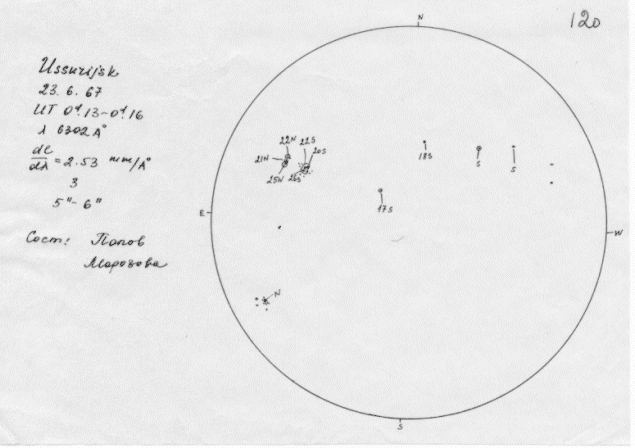 120
Ussurijsk
23. 6. 67
UT 0ᵈ.13-0ᵈ.16
λ 6302 A°
dl/dλ = 2.53 mm/A°
3
5"- 6"
Сост: Попов
Морозова
N
22N 22S
21N 20S
25N 26S
18S
S
S
17S
E
W
N
S